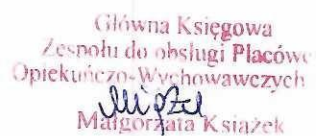 Główna Księgowa
Zespołu do obsługi Placówe
Opiekuńczo-Wychowawczych
Małgorzata Książek